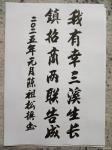 我有幸三溪生长
镇招商两联告成
二〇二五年元月陈祖松撰書